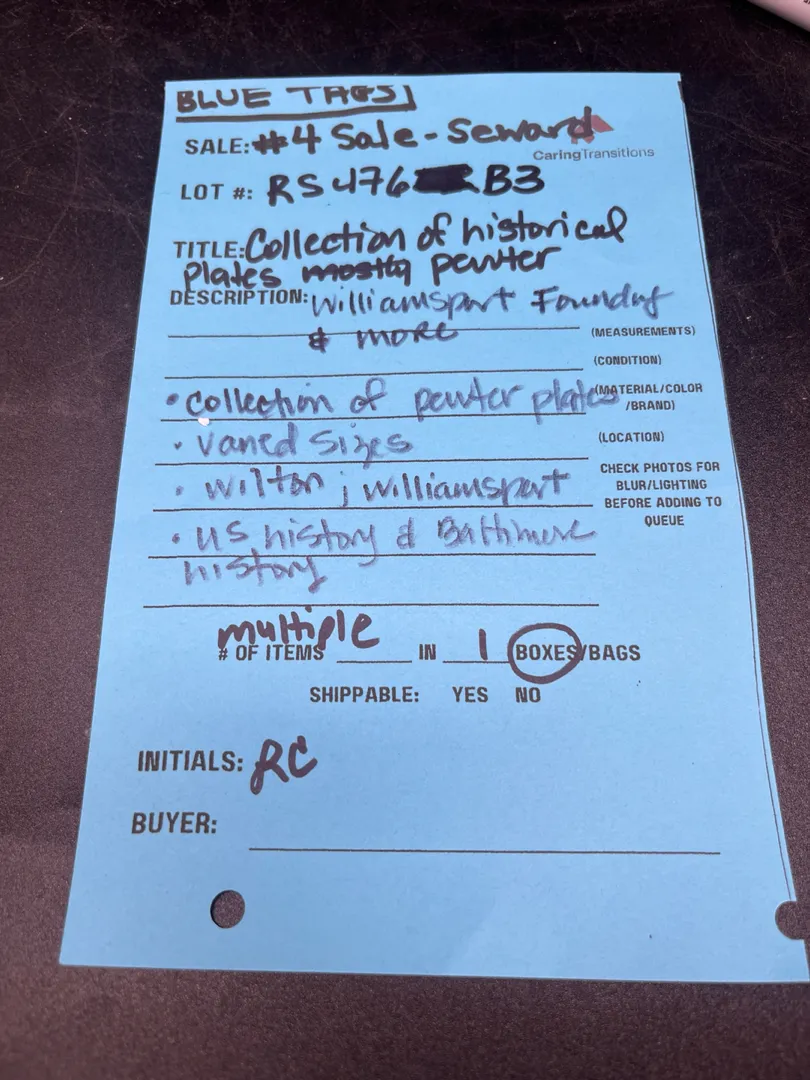 BLUE TAGS
SALE: #4 Sale - Seward
CaringTransitions
LOT #: RS476 B3
TITLE: Collection of historical
plates mostly pewter
DESCRIPTION: Williamsport Foundry
& more
(MEASUREMENTS)
(CONDITION)
• collection of pewter plates
(MATERIAL/COLOR
/BRAND)
• varied sizes
(LOCATION)
• wilton ; williamsport
CHECK PHOTOS FOR
BLUR/LIGHTING
BEFORE ADDING TO
QUEUE
• US history & Balthimore
history
# OF ITEMS multiple IN 1 BOXES/BAGS
SHIPPABLE: YES NO
INITIALS: RC
BUYER: